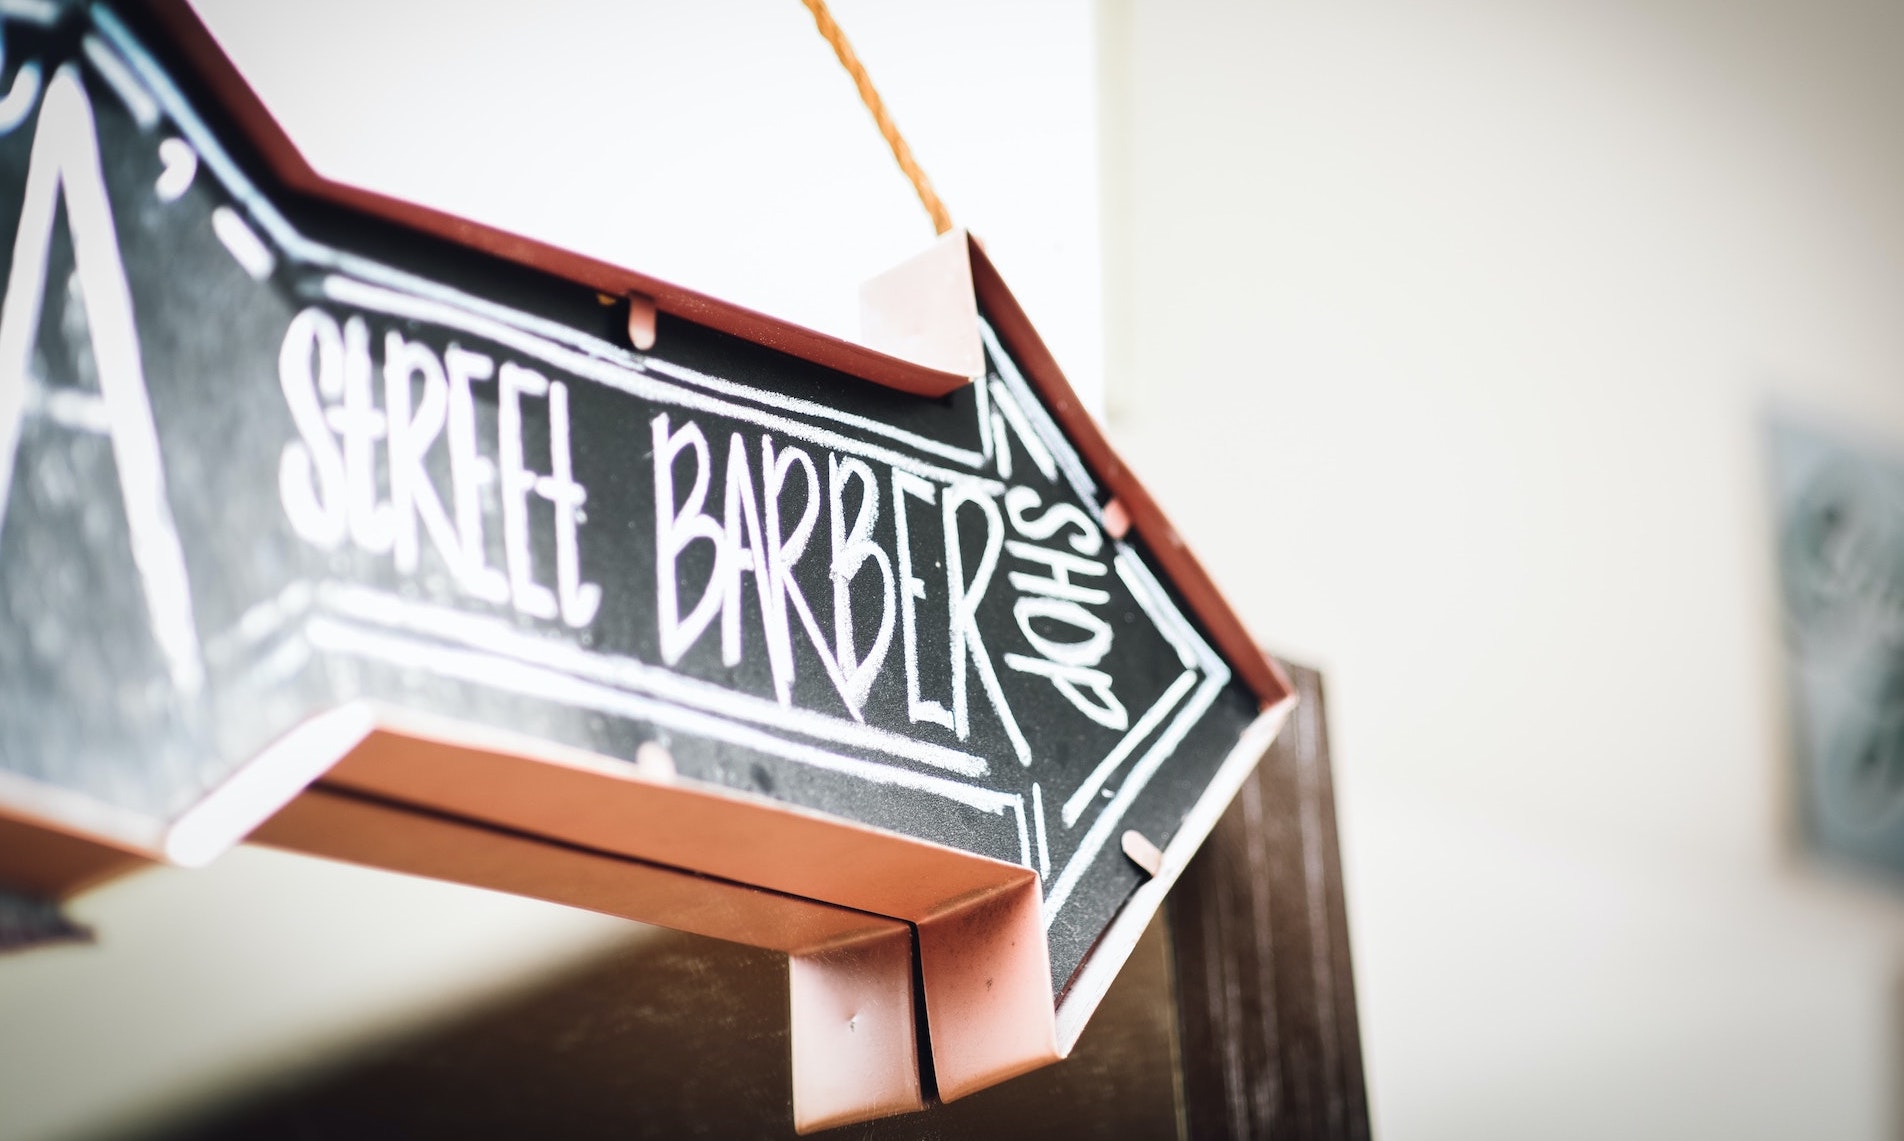 A'
StREEt BARBER
SHOP